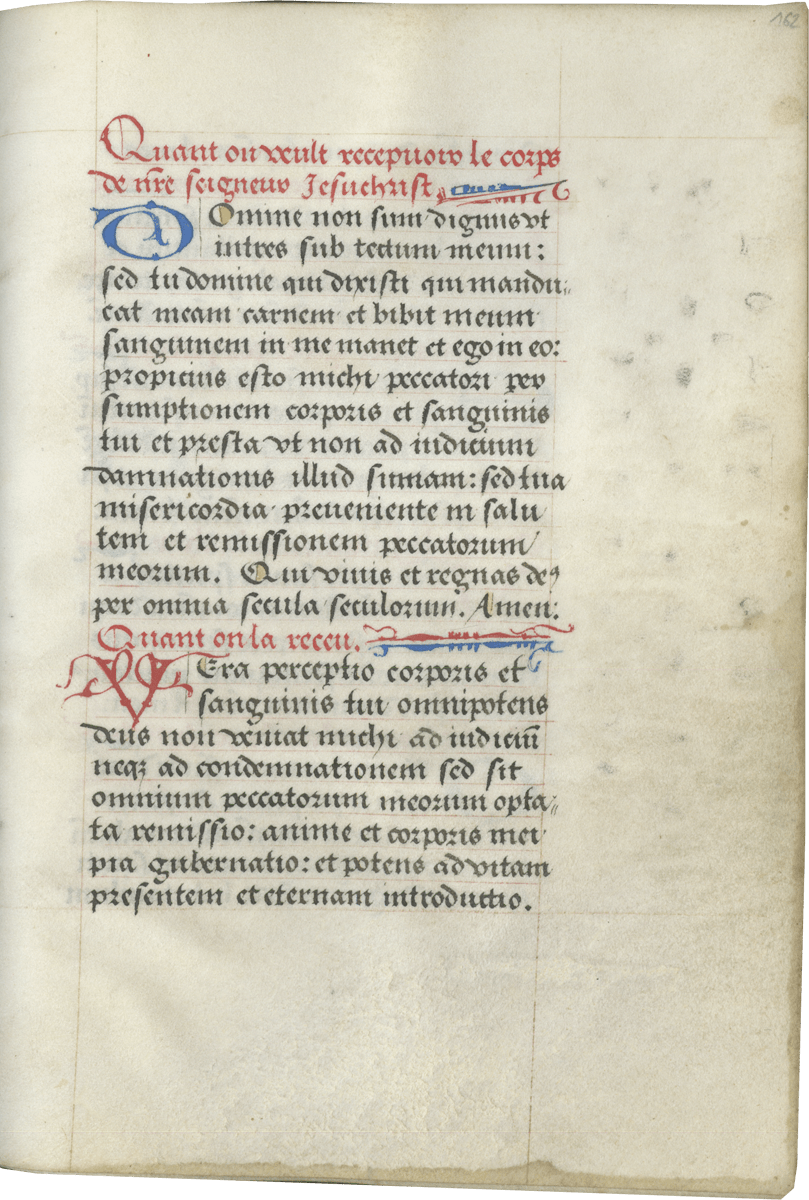 162
Quant on veult recepuoir le corps
de nr̄e seigneur Jesuchrist.
DOmine non sum dignus vt
intres sub tectum meum:
sed tu domine qui dixisti qui mandu-
cat meam carnem et bibit meum
sanguinem in me manet et ego in eo:
propicius esto michi peccatori per
sumptionem corporis et sanguinis
tui et presta vt non ad iudicium
damnationis illud sumam: sed tua
misericordia preueniente in salu
tem et remissionem peccatorum
meorum. Qui viuis et regnas deꝰ
per omnia secula seculorum. Amen.
Quant on la receu.
VEra perceptio corporis et
sanguinis tui omnipotens
deus non veniat michi ad iudiciū
neqꝫ ad condemnationem sed sit
omnium peccatorum meorum opta-
ta remissio: anime et corporis mei
pia gubernatio: et potens ad vitam
presentem et eternam introductio.